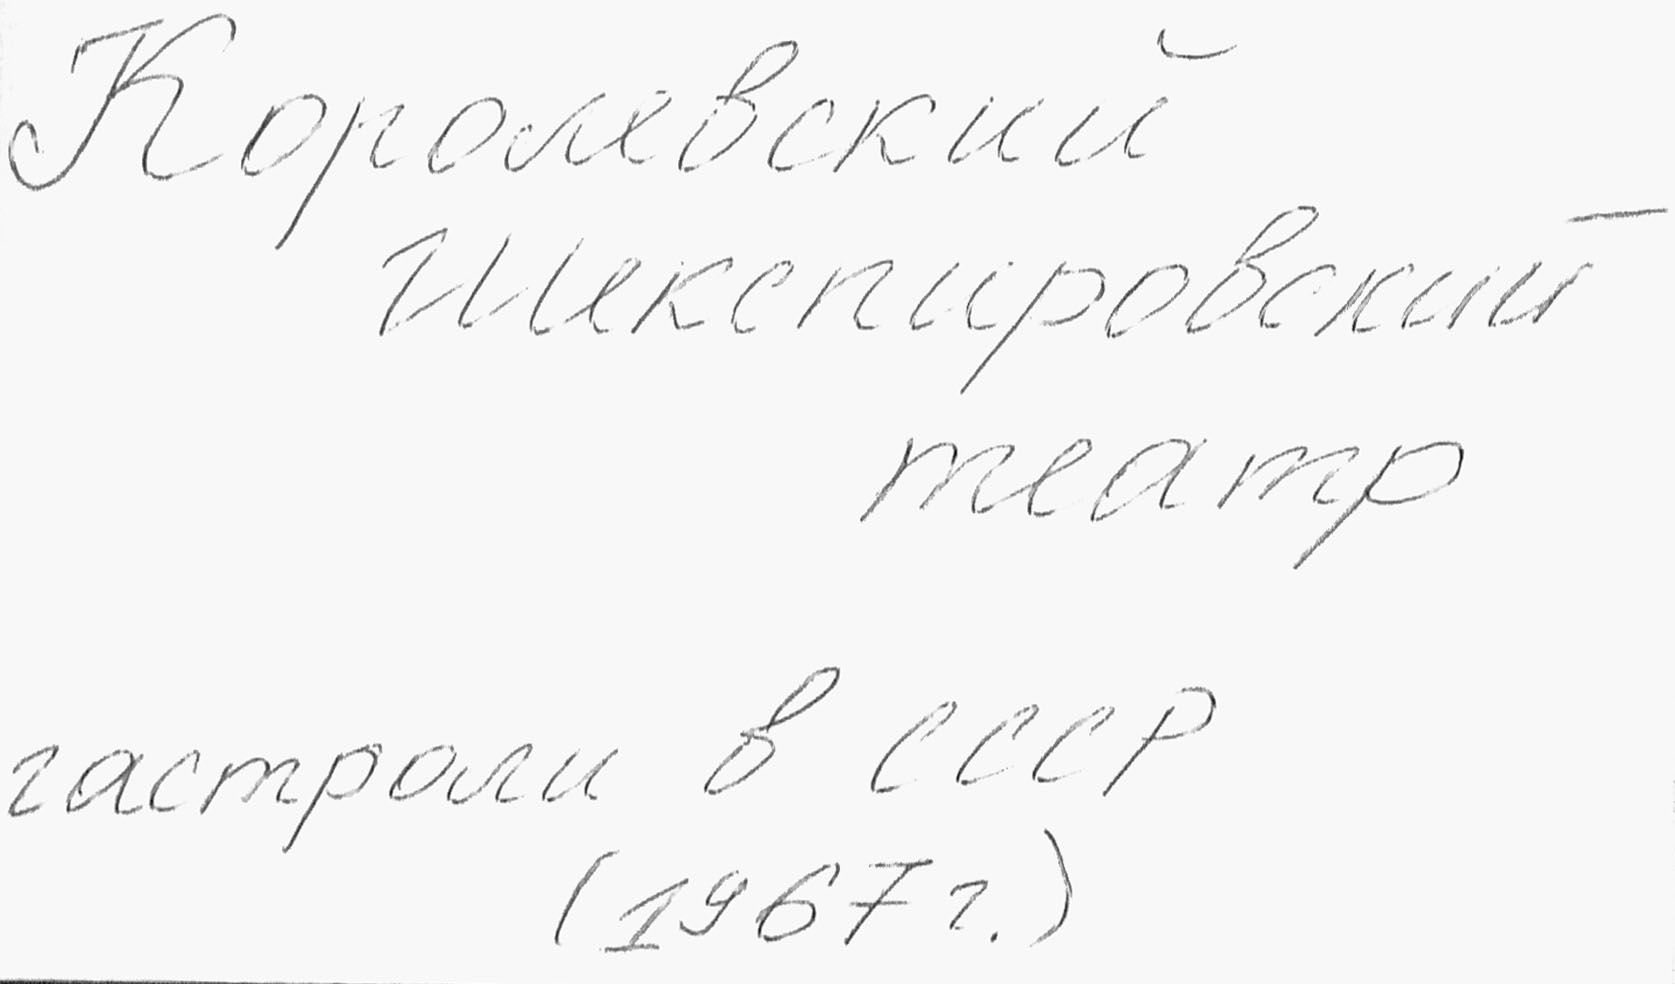 Королевский
Шекспировский
театр
гастроли в СССР
(1967 г.)